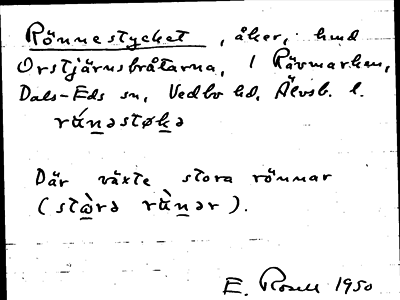 Rönnestycket, åker, hmd
Orstjärnsbråtarna, 1 Rävmarken,
Dals-Eds sn, Vedbo hd, Älvsb. l.
rǘn̲əstøk̲ə
Där växte stora rönnar
(stɷ̀rə rʉ̀n̲ər).
E. Rosell 1950